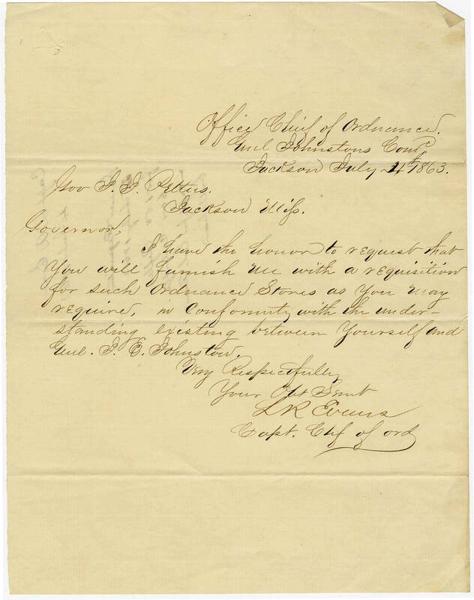 Office Chief of Ordnance.
Genl Johnstons Comd
Jackson July 1863.
Gov J. J. Pettus.
Jackson Miss.
Governor,
I have the honor to request that
You will furnish me with a requisition
for such Ordnance Stores as You may
require, in Conformity with the under-
standing existing between Yourself and
Genl. J. E. Johnston.
Very Respectfully
Your Obt Servt
Evans
Capt. Chf of ord